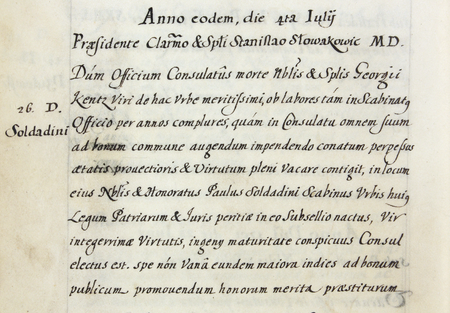 Anno eodem, die 4ta Iulij
Præsidente Clarmo & Spli Stanislao Słowakowic M D.
Dúm Officium Consulatûs morte Nblis & Splis Georgii
Kentz Viri de hac Vrbe meritissimi, ob labores tám in Scabinatq
26. D.
Officio per annos complures, quám in Consulatu omnem suum
Soldadini
ad bonum commune augendum impendendo conatum perpessos
ætatis provectioris & Virtutum pleni Vacare contigit, in locum
eius Nblis & Honoratus Paulus Soldadini Scabinus Vrbis huiq
Legum Patriarum & Iuris peritiâ in eo Subsellio nactus, Vir
integerrimæ Virtutis, ingeny maturitate conspicuus Consul
electus est. spe nón Vanâ eundem maiora indies ad bonum
publicum promovendum honorum merita præstiturum